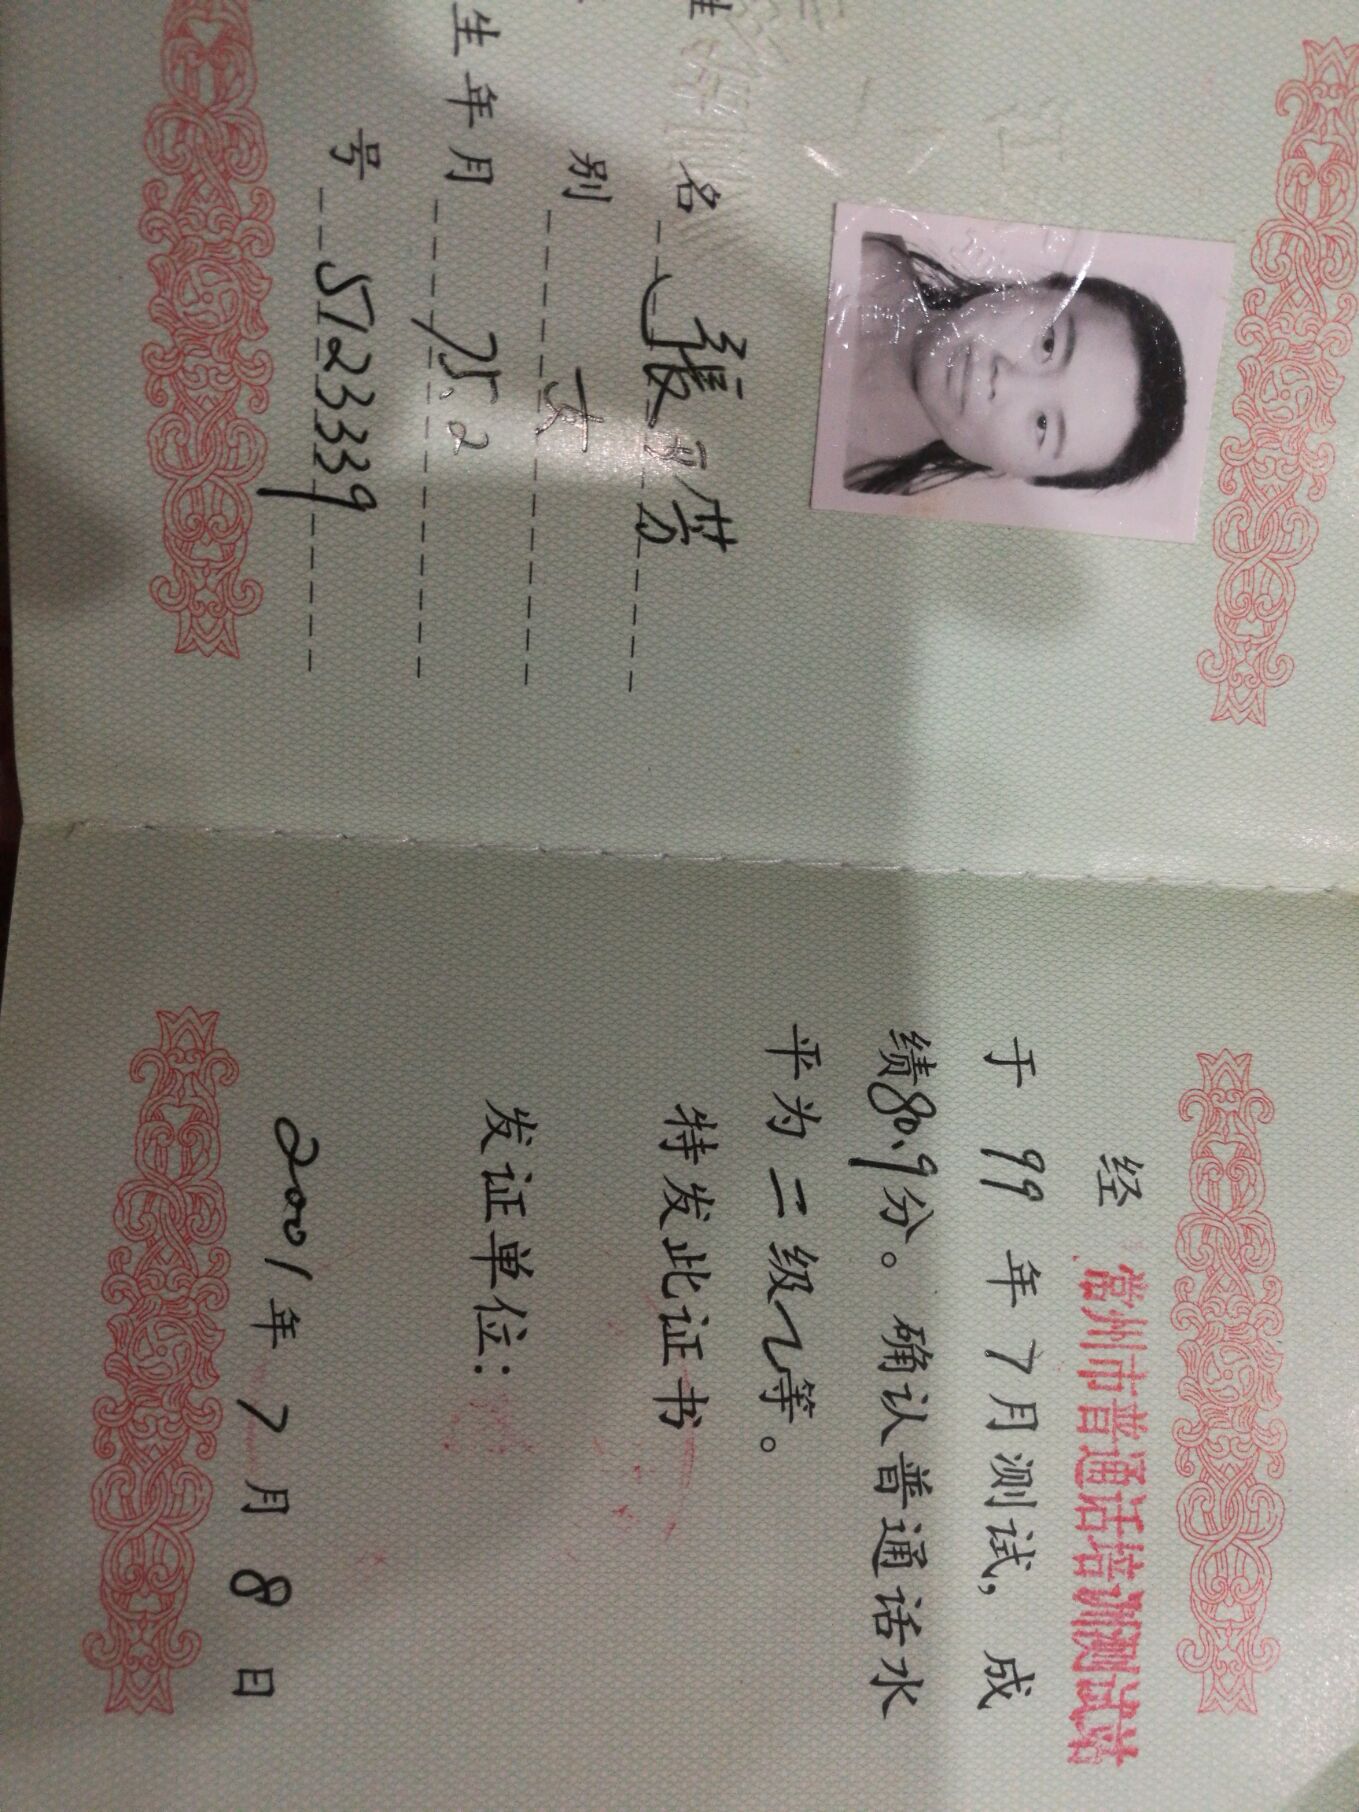 名 張 芳
别 女
生年月 75.2
号 5123339
经 常州市普通话培训测试站
于 99 年 7 月测试，成
绩80.9分。确认普通话水
平为二级乙等。
特发此证书
发证单位：
2001年 7 月 8 日